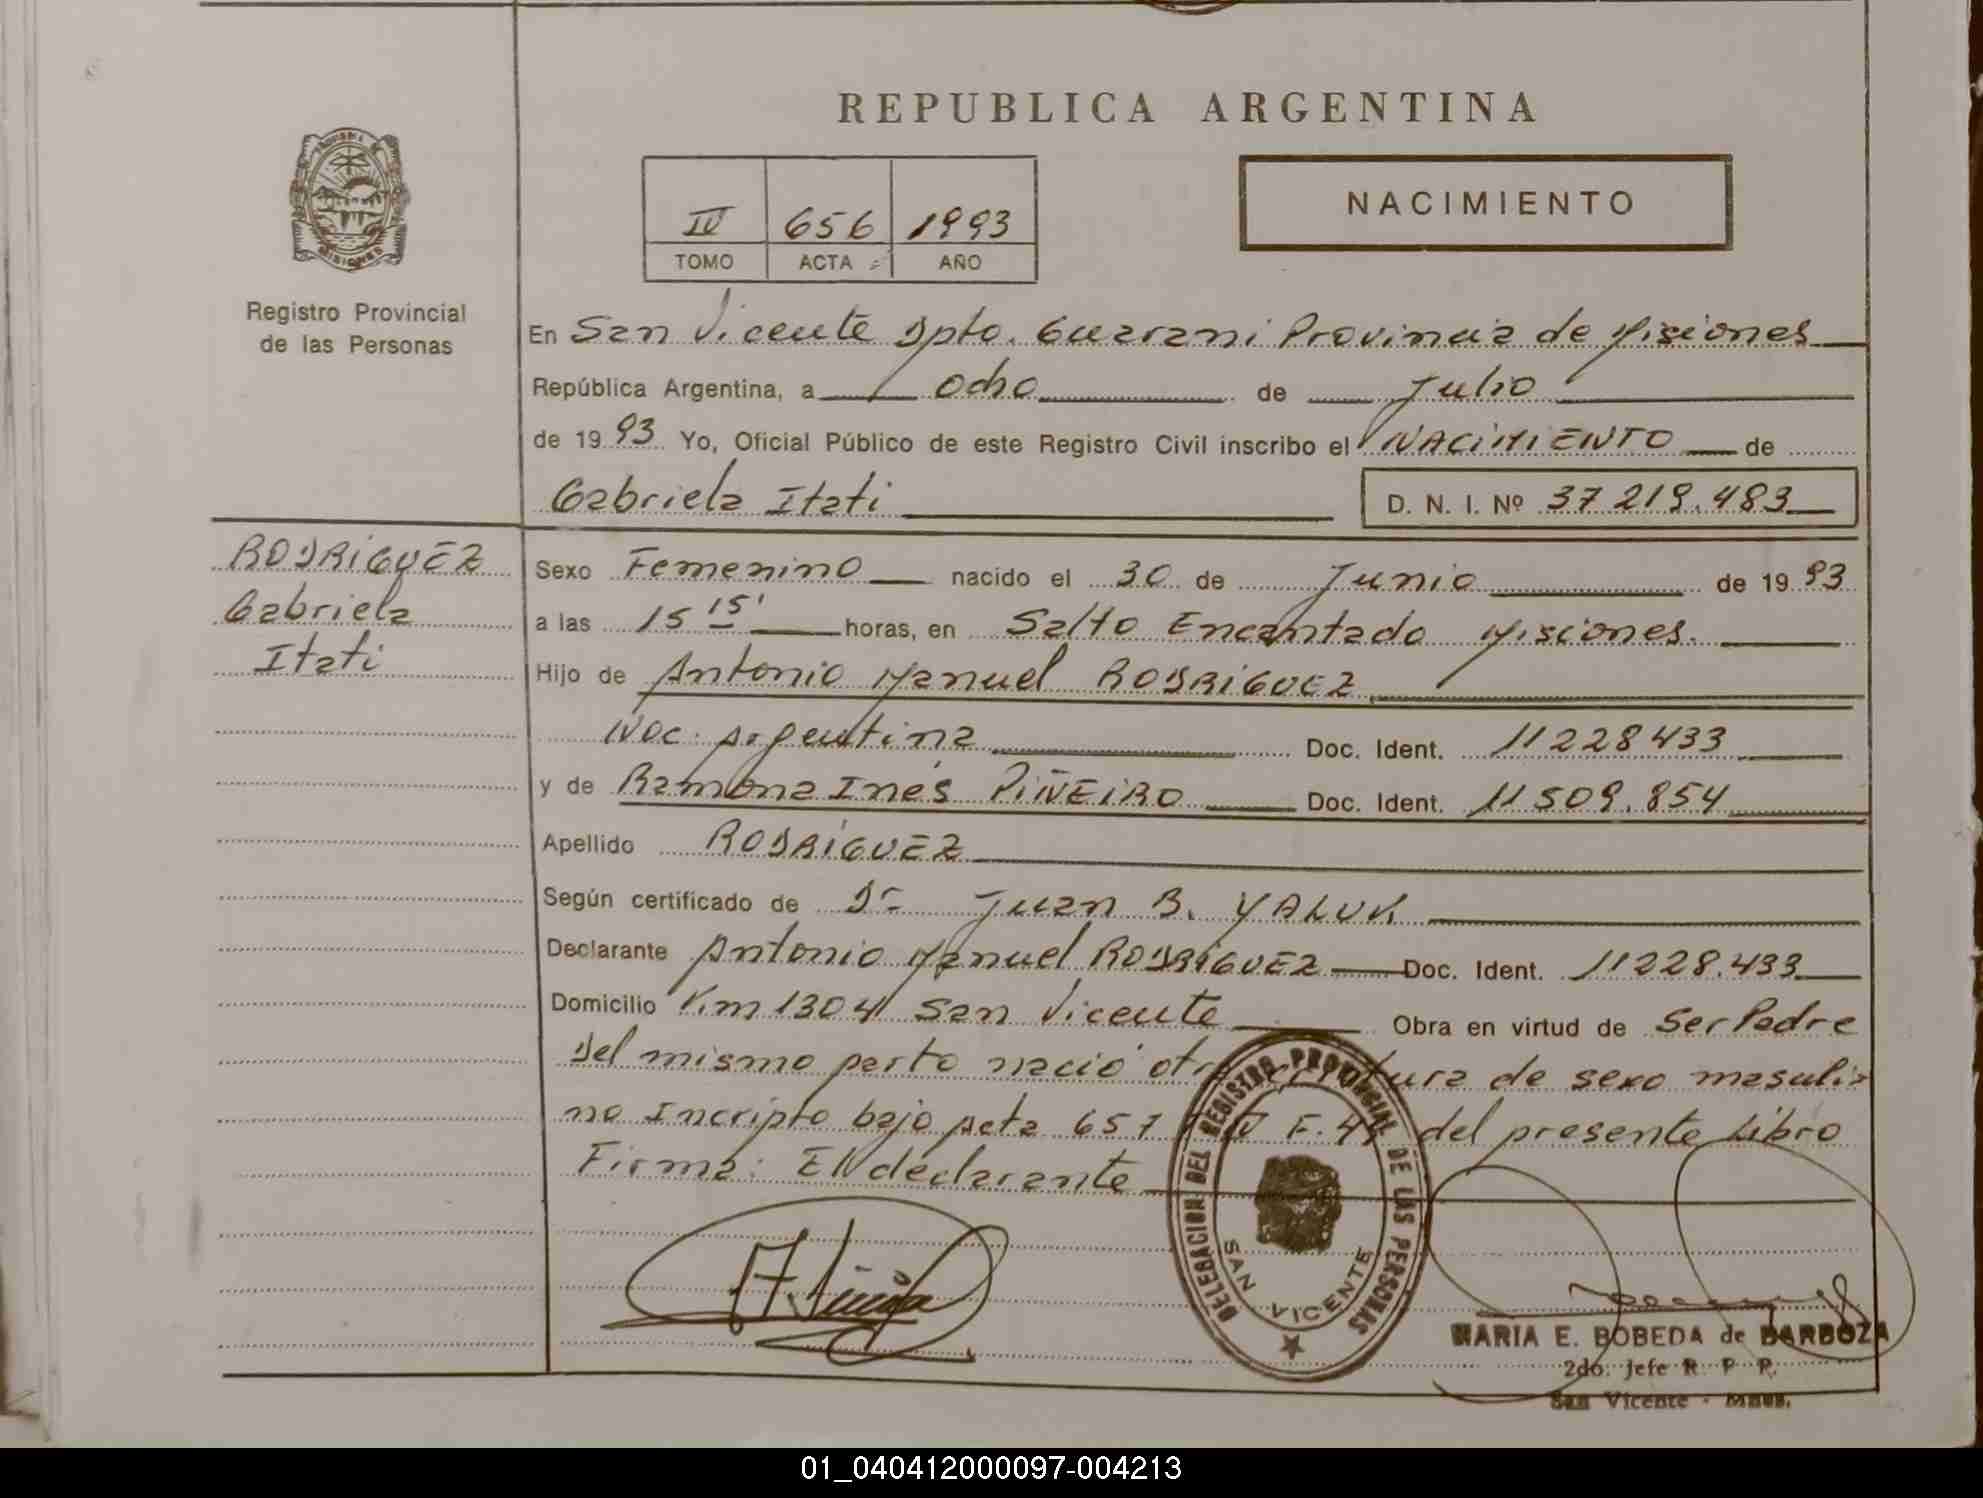 REPUBLICA ARGENTINA
IV 656 1993
TOMO ACTA AÑO
NACIMIENTO
MISIONES
Registro Provincial
de las Personas
En San Vicente Dpto. Guarani Provincia de Misiones
República Argentina, a Ocho de Julio
de 1993 Yo, Oficial Público de este Registro Civil inscribo el NACIMIENTO de
Gabriela Itati D. N. I. Nº 37 219.483
RODRIGUEZ
Gabriela
Itati
Sexo Femenino nacido el 30 de Junio de 1993
a las 15 15' horas, en Salto Encantado Misiones.
Hijo de Antonio Manuel RODRIGUEZ
Nac. Argentina Doc. Ident. 11228433
y de Ramona Inés PIÑEIRO Doc. Ident. 11509.854
Apellido RODRIGUEZ
Según certificado de Dr Juan B. YALUK
Declarante Antonio Manuel RODRIGUEZ Doc. Ident. 11228.433
Domicilio Km 1304 San Vicente Obra en virtud de Ser Padre
Del mismo parto nació otra criatura de sexo masculi
no Incripto bajo Acta 657 IV F. del presente Libro
Firma: El declarante
DELEGACION DEL REGISTRO PROVINCIAL DE LAS PERSONAS
SAN VICENTE
MARIA E. BOBEDA de BARBOZA
2do. Jefe R. P. P.
San Vicente - Mnes.
01_040412000097-004213